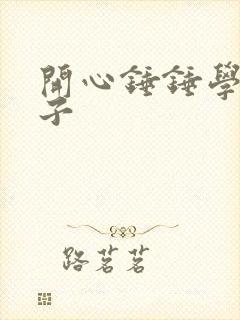 開心錘錘學
子
路茗茗